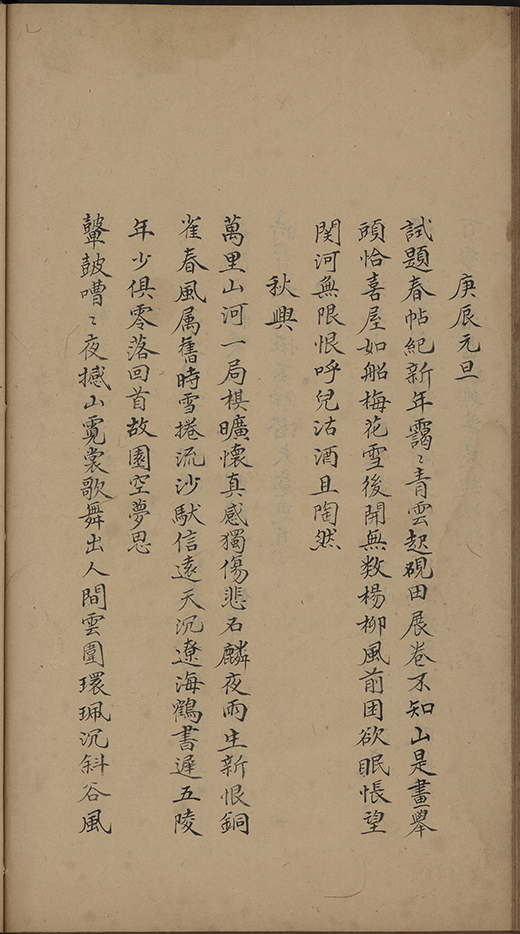 庚辰元旦
試題春帖紀新年靄〻青雲起硯田展卷不知山是畫舉
頭恰喜屋如船梅花雪後開無数楊柳風前困欲眠悵望
関河無限恨呼兒沽酒且陶然
秋興
萬里山河一局棋曠懷真感獨傷悲石麟夜雨生新恨銅
雀春風属舊時雪捲流沙馱信遠天沉遼海鶴書遲五陵
年少俱零落回首故園空夢思
鼙鼓嘈〻夜撼山霓裳歌舞出人間雲圍環珮沉斜谷風